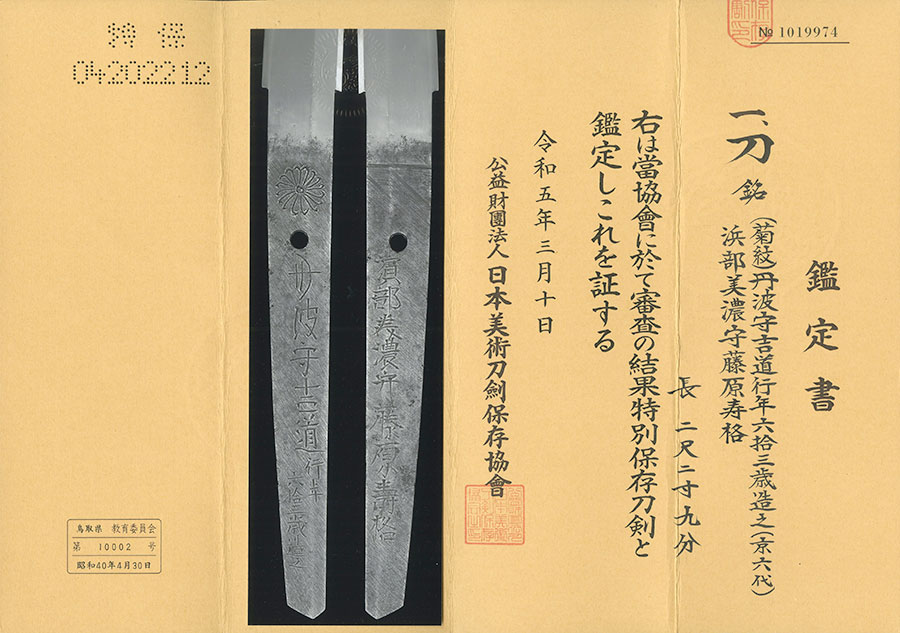 № 1019974
鑑定書
一、刀 銘 (菊紋)丹波守吉道行年六拾三歳造之(京六代)
浜部美濃守藤原寿格
長 二尺二寸九分
右は當協會に於て審査の結果特別保存刀剣と
鑑定しこれを証する
令和五年三月十日
公益財團法人 日本美術刀劍保存協會
濱部美濃守藤原壽格
丹波守吉道行年
六拾三歳造之
特保
04202212
鳥取県 教育委員会
第 10002 号
昭和40年4月30日